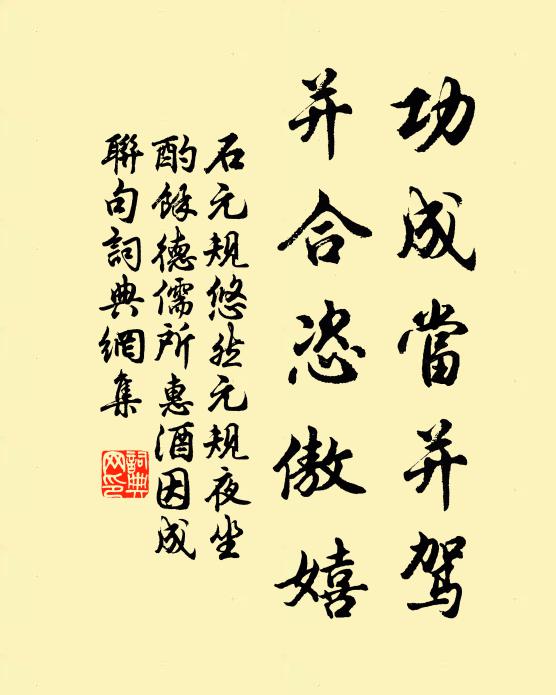 功成當并駕
并合恣傲嬉
石元規悠然元規夜坐
酌餘德儒所惠酒因成
聯句詞典網集
詞典网印